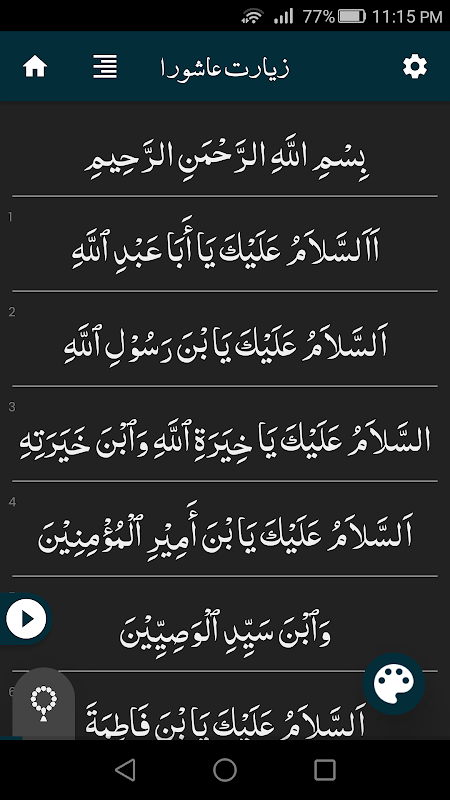 77% 11:15 PM
زيارت عاشورا
بِسْمِ اللَّهِ الرَّحْمَنِ الرَّحِيمِ
1
اَاَلسَّلاَمُ عَلَيْكَ يَا أَبَا عَبْدِ ٱللَّهِ
2
اَلسَّلاَمُ عَلَيْكَ يَا بْنَ رَسُوْلِ ٱللَّهِ
3
السَّلاَمُ عَلَيْكَ يَا خِيَرَةِ ٱللَّهِ وَٱبْنَ خَيَرَتِهِ
4
اَلسَّلاَمُ عَلَيْكَ يَا بْنَ أَمِيْرِ ٱلْمُؤْمِنِيْنَ
وَٱبْنَ سَيِّدِ ٱلْوَصِيِّيْنَ
6
اَلسَّلاَمُ عَلَيْكَ يَا بْنَ فَاطِمَةَ